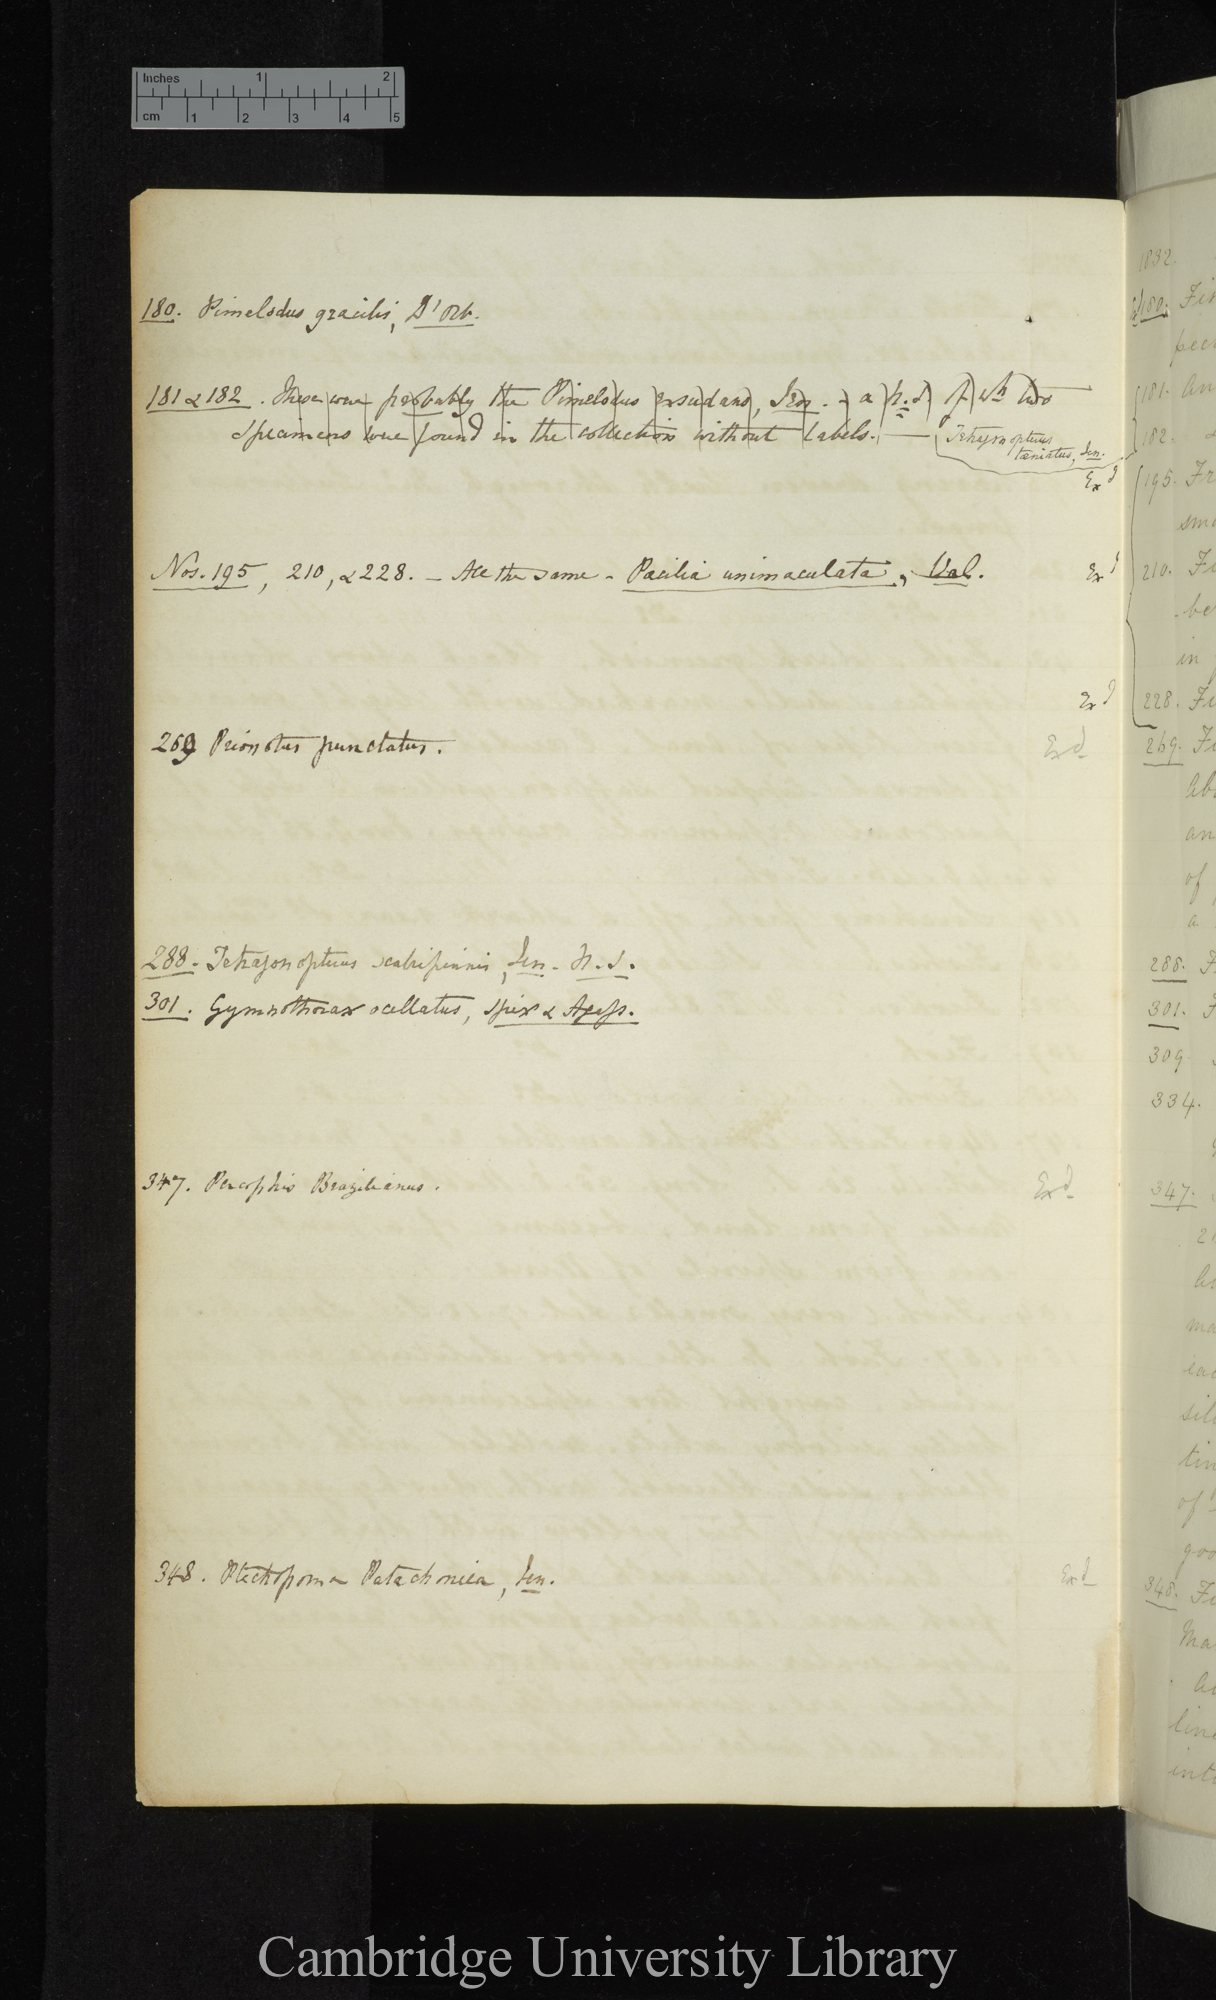 Inches 1 2
cm 1 2 3 4 5
180. Pimelodus gracilis, D'Orb.
181 & 182. These were probably the Pimelodus exsudans, Jen. - a n.s. of wh two
specimens were found in the collection without labels. — Tetragonopterus
tæniatus, Jen.
Exd
Nos. 195, 210, & 228. - All the same - Pæcilia unimaculata, Val. Exd
Exd
269 Prionotus punctatus. Exd
288. Tetragonopterus scabripinnis, Jen. N.S.
301. Gymnothorax ocellatus, Spix & Agass.
347. Percophis Brazilianus. Exd
348. Plectropoma Patachonica, Jen. Exd
1832.
180. Fis
181. An
182.
195. Fr
sma
210. Fi
be
in
228. Fi
269. Fi
Ab
an
of
a
288. F
301. F
309
334.
347.
ma
sil
tin
of
goo
348. Fi
Ma
line
inte
Cambridge University Library